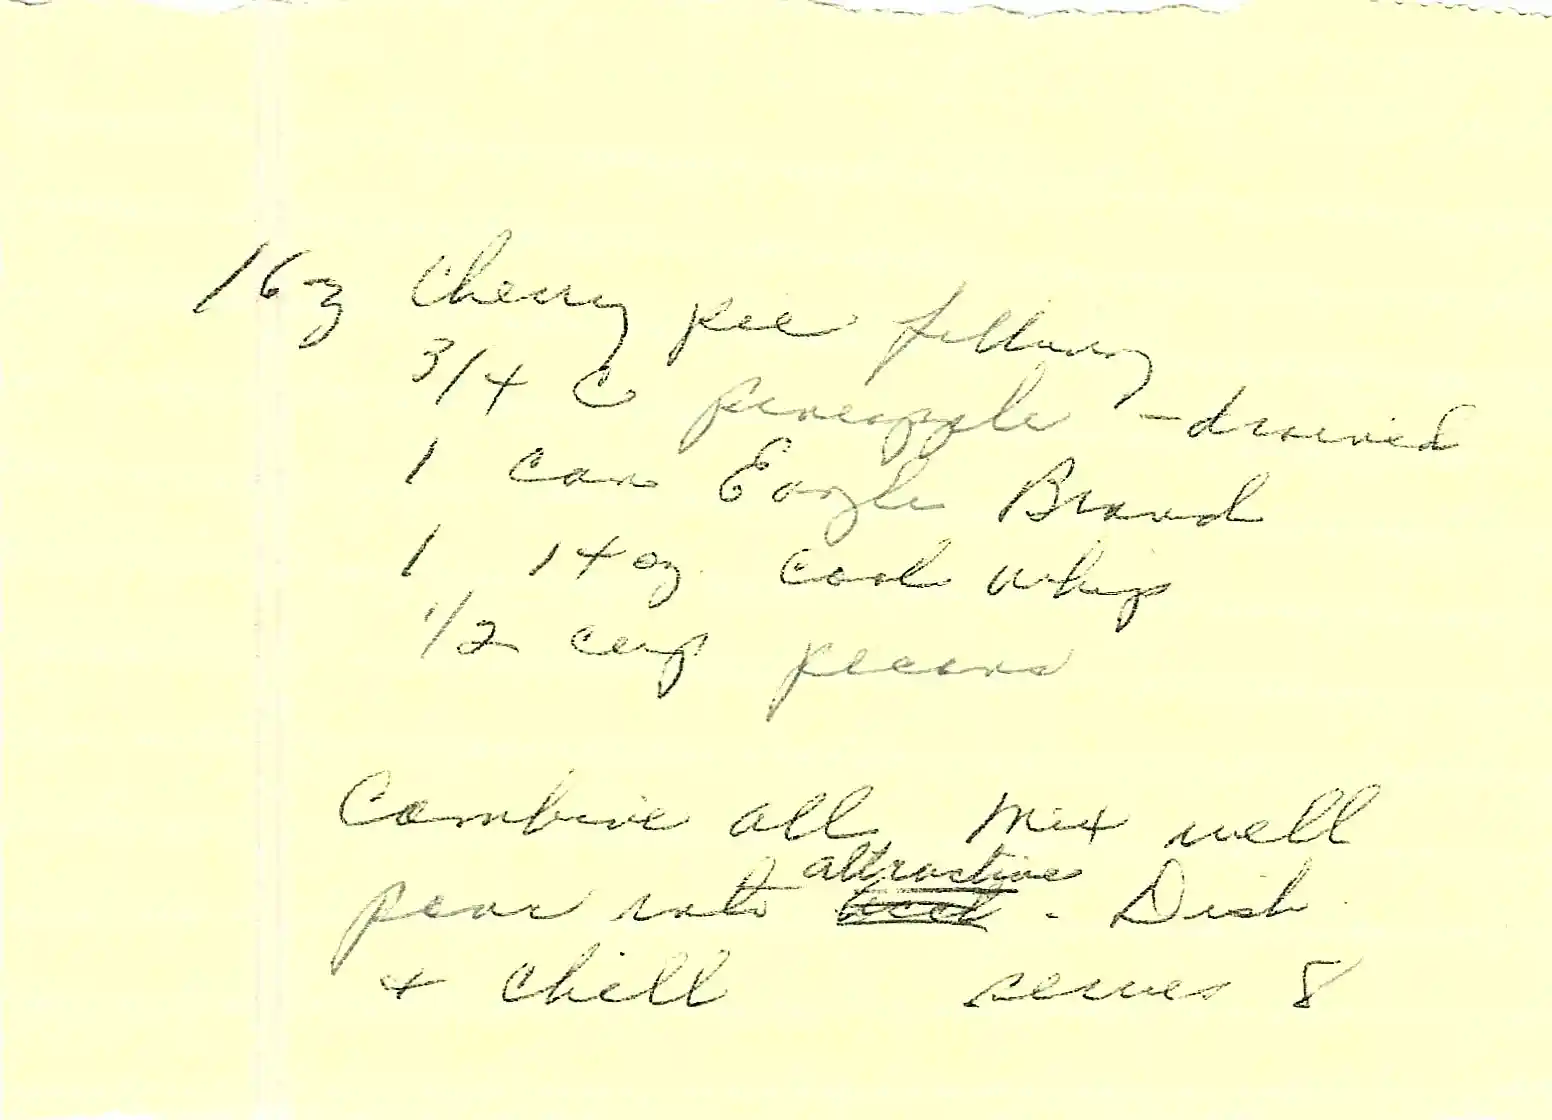 16 oz Cherry pie filling
3/4 C pineapple - drained
1 can Eagle Brand
1 14 oz. cool whip
1/2 cup pecans
Combine all Mix well
pour into attractive . Dish
+ chill serves 8